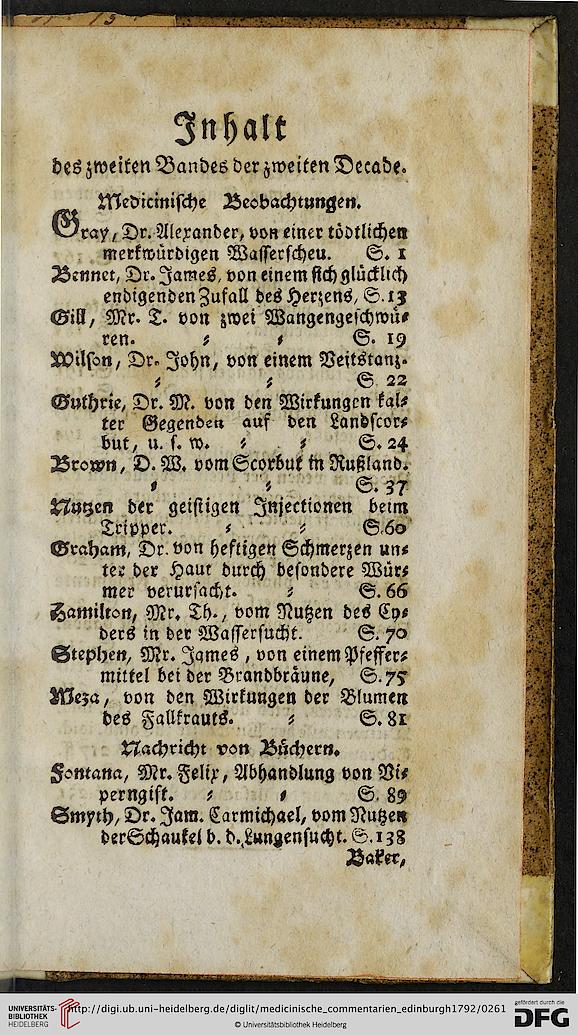 Inhalt
des zweiten Bandes der zweiten Decade.
Medicinische Beobachtungen.
Gray, Dr. Alexander, von einer tödtlichen
merkwürdigen Wasserscheu. S. 1
Bennet, Dr. James, von einem sich glücklich
endigenden Zufall des Herzens, S. 13
Gill, Mr. T. von zwei Wangengeschwü⸗
ren. ⸗ ⸗ S. 19
Wilson, Dr. John, von einem Veitstanz.
⸗ ⸗ S. 22
Guthrie, Dr. M. von den Wirkungen kal⸗
ter Gegenden auf den Landscor⸗
but, u. s. w. ⸗ ⸗ S. 24
Brown, D. W. vom Scorbut in Rußland.
⸗ ⸗ S. 37
Nutzen der geistigen Injectionen beim
Tripper. ⸗ ⸗ S. 60
Graham, Dr. von heftigen Schmerzen un⸗
ter der Haut durch besondere Wür⸗
mer verursacht. ⸗ S. 66
Hamilton, Mr. Th., vom Nutzen des Cy⸗
ders in der Wassersucht. S. 70
Stephen, Mr. James, von einem Pfeffer⸗
mittel bei der Brandbräune, S. 75
Meza, von den Wirkungen der Blumen
des Fallkrauts. ⸗ S. 81
Nachricht von Büchern.
Fontana, Mr. Felix, Abhandlung von Vi⸗
perngift. ⸗ ⸗ S. 89
Smyth, Dr. Jam. Carmichael, vom Nutzen
der Schaukel b. d. Lungensucht. S. 138
Baker,
UNIVERSITÄTS-
BIBLIOTHEK
HEIDELBERG
http://digi.ub.uni-heidelberg.de/diglit/medicinische_commentarien_edinburgh1792/0261
© Universitätsbibliothek Heidelberg
gefördert durch die
DFG